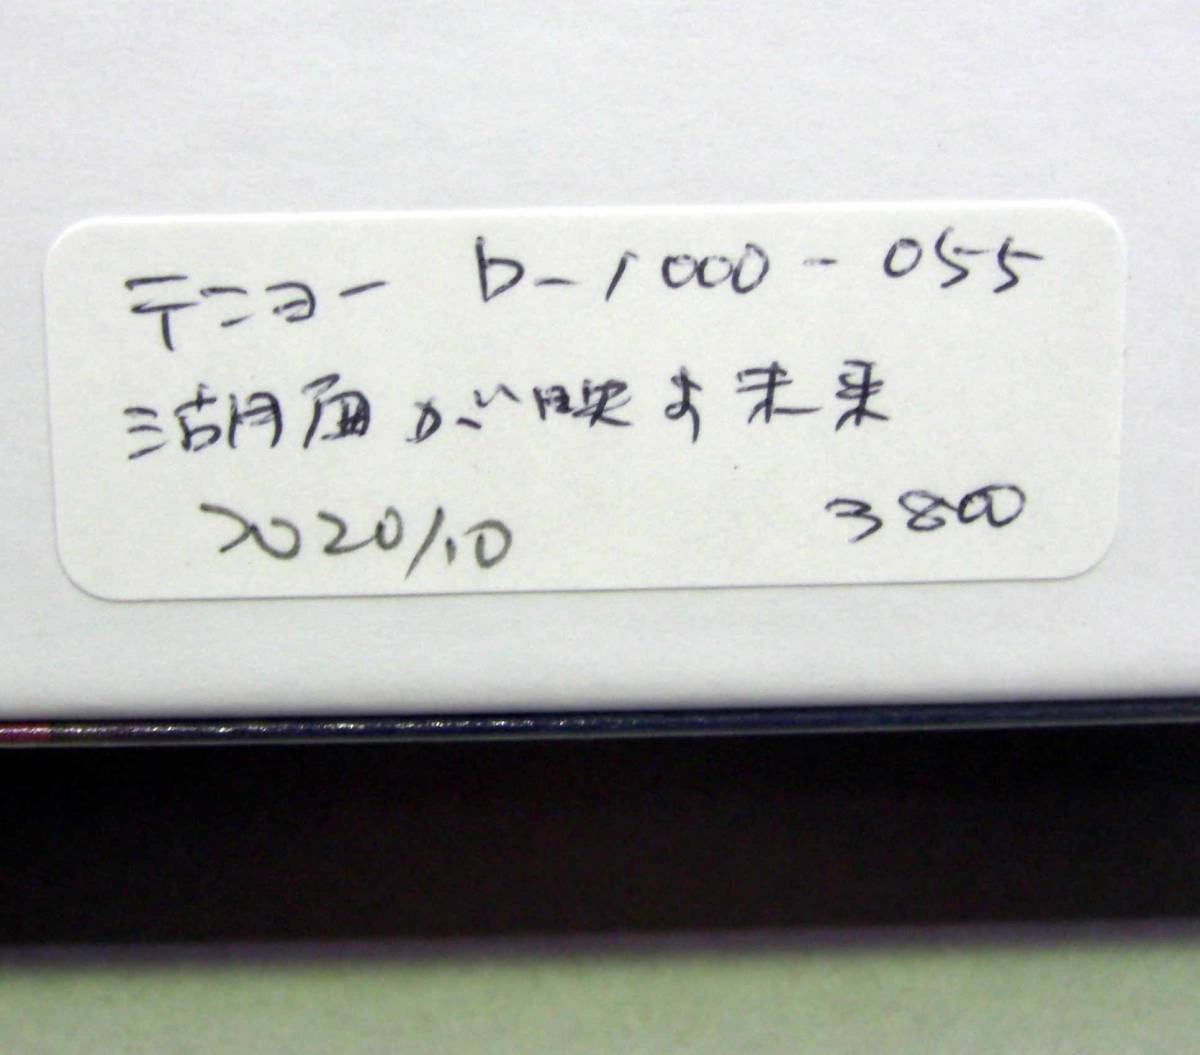 テニヨー D-1000-055
湖面が映す未来
2020/10 3800